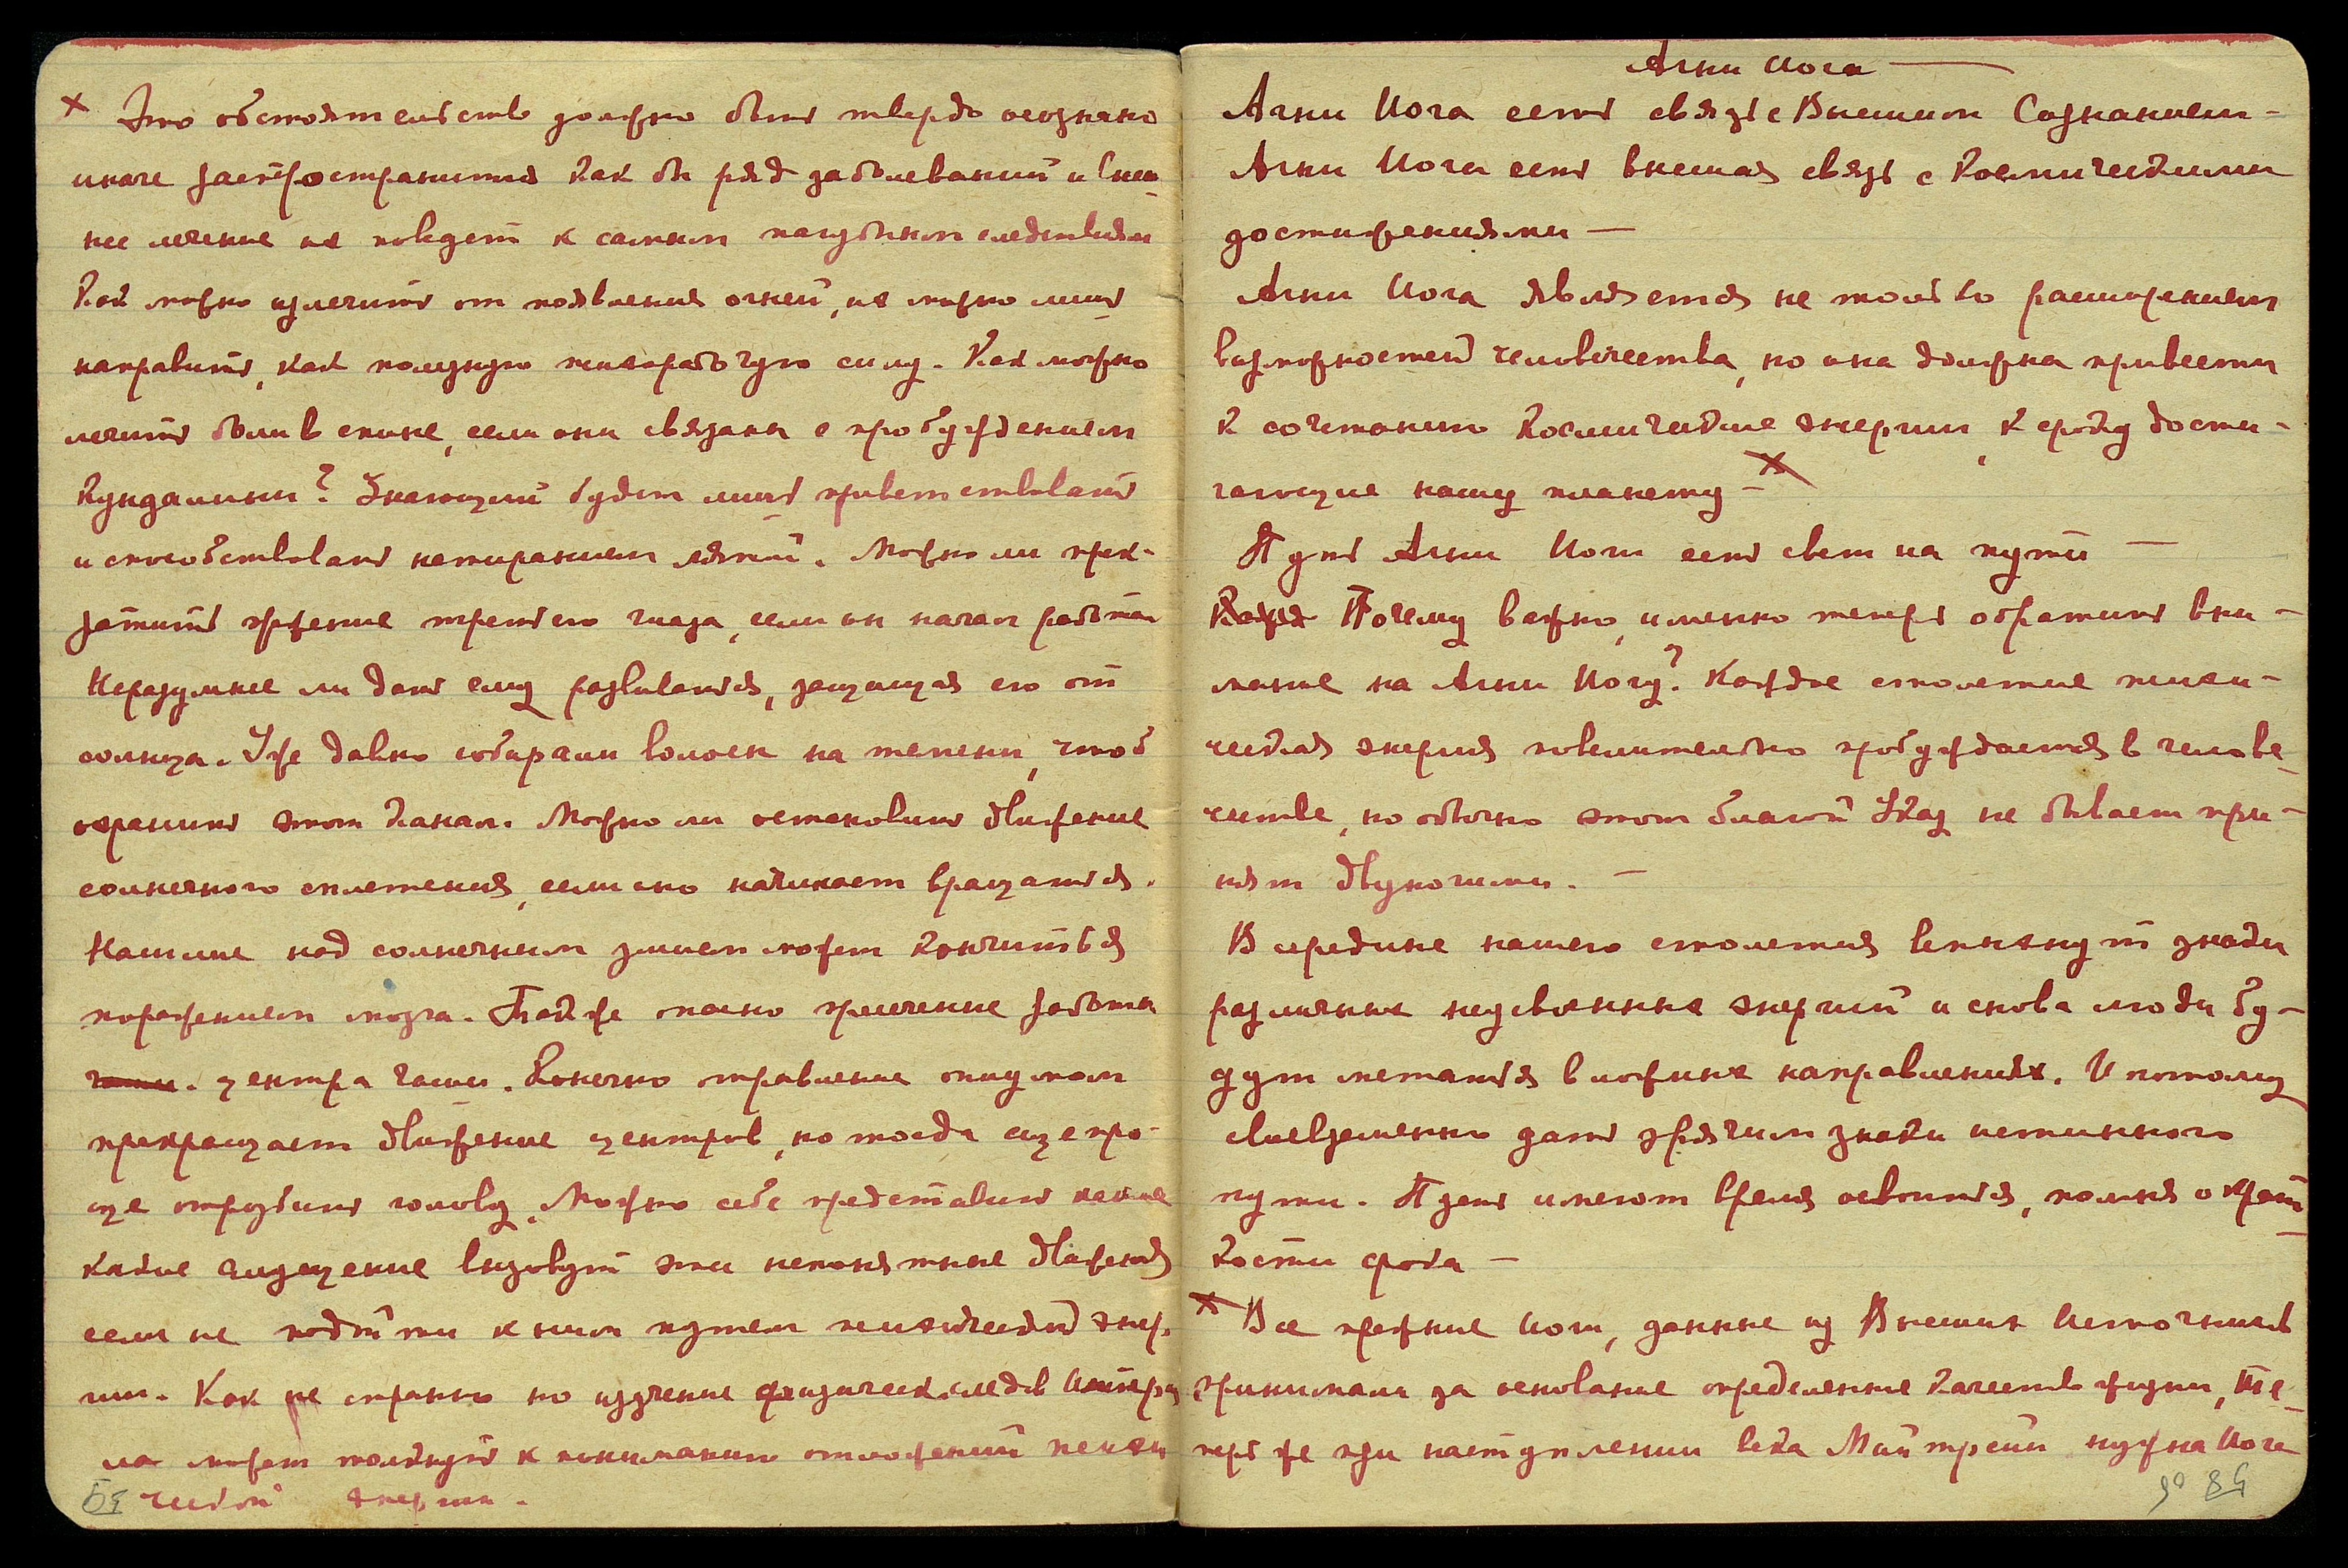 × Это обстоятельство должно быть твердо осознано
иначе распространится как бы ряд заболеваний и внеш-
нее лечение их поведет к самым пагубным следствиям
Как можно излечить от появления огней, их можно лишь
направить, как полезную психорабочую силу. Как можно
лечить боли в спине, если они связаны с пробуждением
Кундалини? Знающий будет лишь приветствовать
и способствовать натиранием мятой. Можно ли прек-
ратить жжение третьего глаза, если он начал работать
Неразумнее ли дать ему развиваться, защищая его от
солнца. Уже давно собирали волосы на темени, чтоб
охранить этот канал. Можно ли остановить движение
солнечного сплетения, если оно начинает вращаться.
Насилие над солнечным змием может кончиться
поражением мозга. Также опасно пресечение работы
центра чаши. Конечно отравление опиумом
прекращает движение центров, но тогда еще про-
ще отрубить голову. Можно себе представить
какие смущение вызовут эти непонятные движения
если не подойти к ним путем психической энер-
гии. Как не странно но изучение физическ. следов Империл
ла может толкнуть к пониманию отложений психи
ческой энергии.
59
Агни Йога —
Агни Йога есть связь с Высшим Сознанием —
Агни Йога есть высшая связь с Космическими
достижениями —
Агни Йога является не только расширением
возможностей человечества, но она должна привести
к сочетанию Космические энергии, к сроку дости-
гающие нашу планету — ×
Путь Агни Йоги есть свет на пути —
Почему важно, именно теперь обратить вни-
мание на Агни Йогу? Каждое столетие психи-
ческая энергия повелительно пробуждается в челове-
честве, но обычно этот благой Указ не бывает при-
нят двуногими. —
В середине нашего столетия вспыхнут знаки
различных неузнанных энергий и снова люди бу-
дут метаться в ложных направлениях. И потому
своевременно дать зрячим знаки истинного
пути. Пусть имеют время освоиться, помня о крат-
кости срока —
× Все прежние Йоги, данные из Высших Источников
принимали за основание определенные качеств жизни, те-
перь же при наступлении века Майтрейи нужна Йога
58